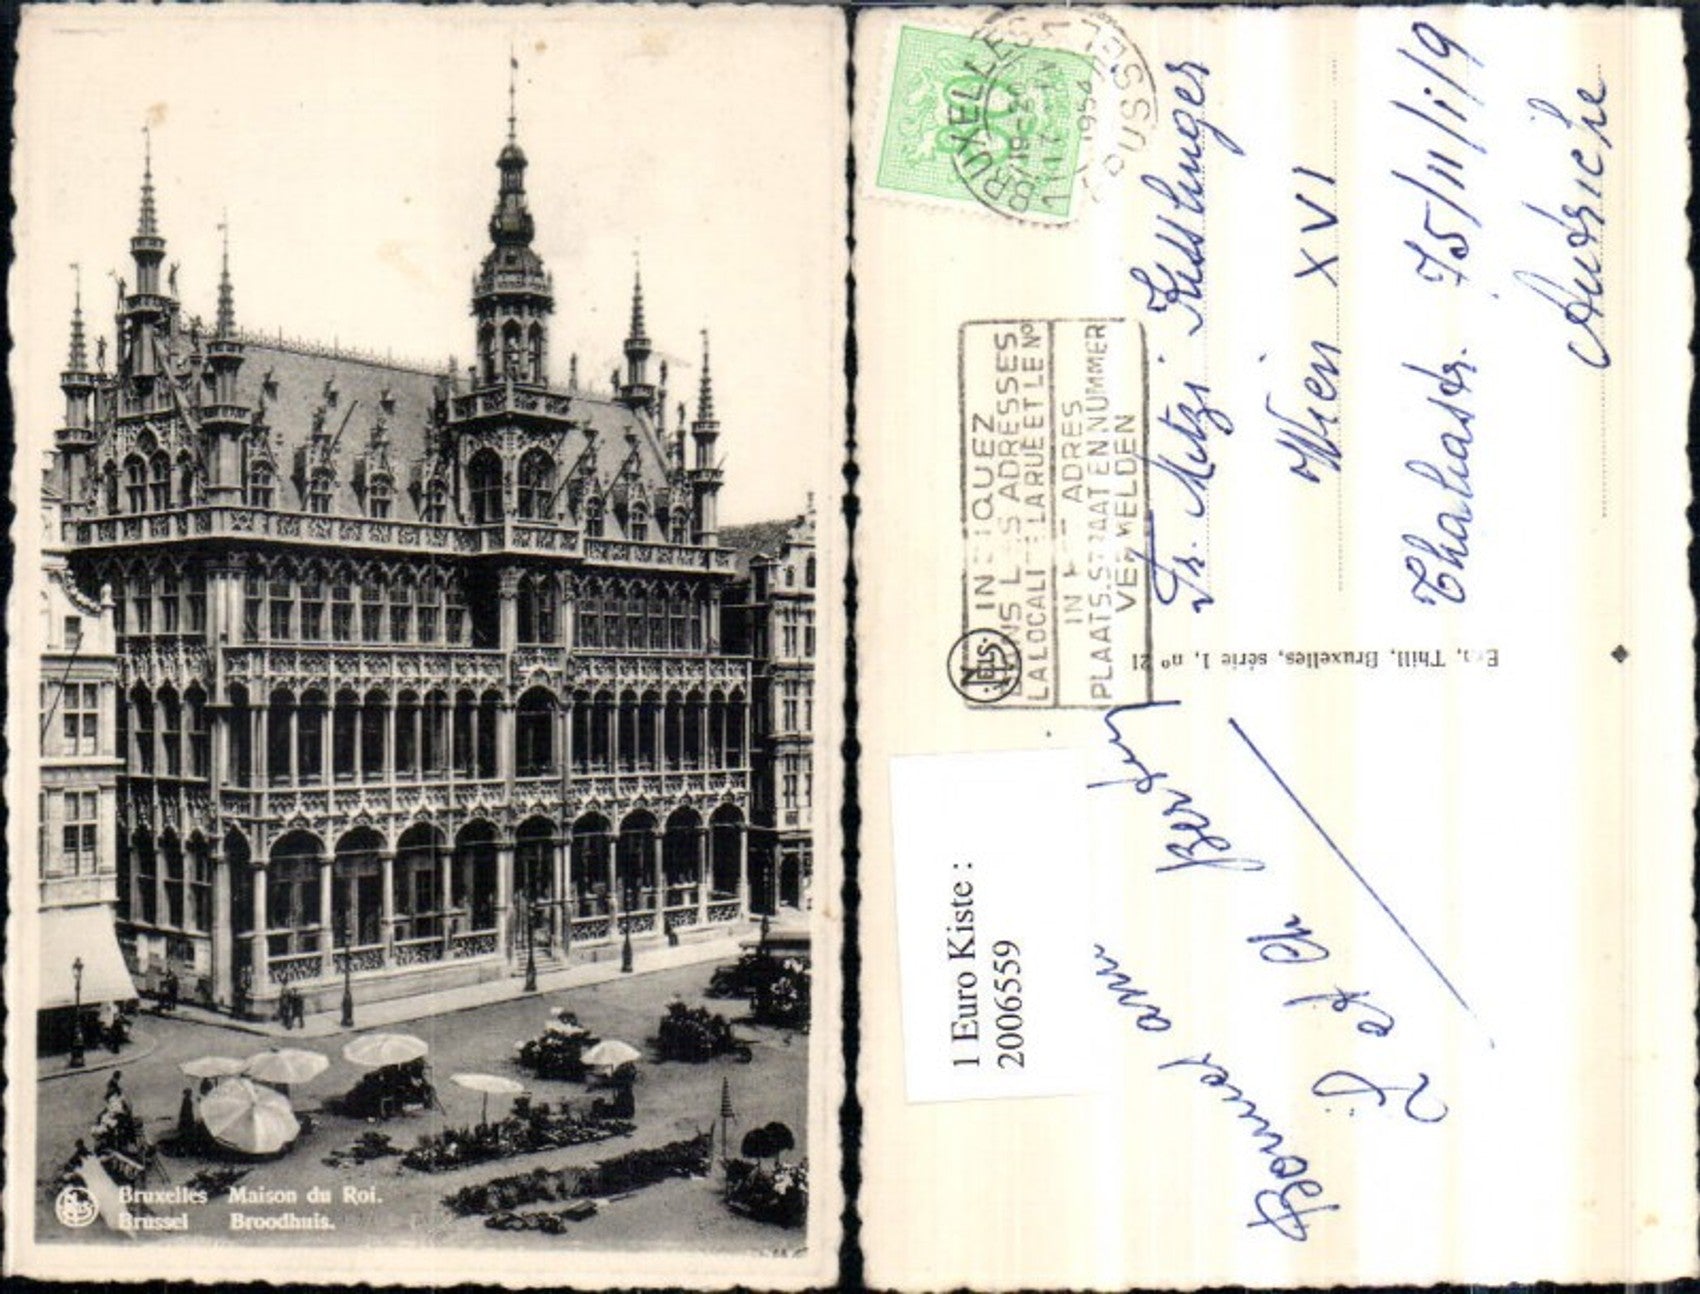 Bruxelles Maison du Roi.
Brussel Broodhuis.
NELS
BRUXELLES
BRUSSEL
1954
INDIQUEZ
DANS LES ADRESSES
LA LOCALITE LA RUE ET LE Nº
IN ADRES
PLAATS.STRAAT EN NUMMER
VERMELDEN
NELS
Ern. Thill, Bruxelles, série 1, nº 21
Fr. Mitzi Kesslinger
Wien XVI
Thaliastr. 75/II/I/9
Autriche
1 Euro Kiste :
2006559